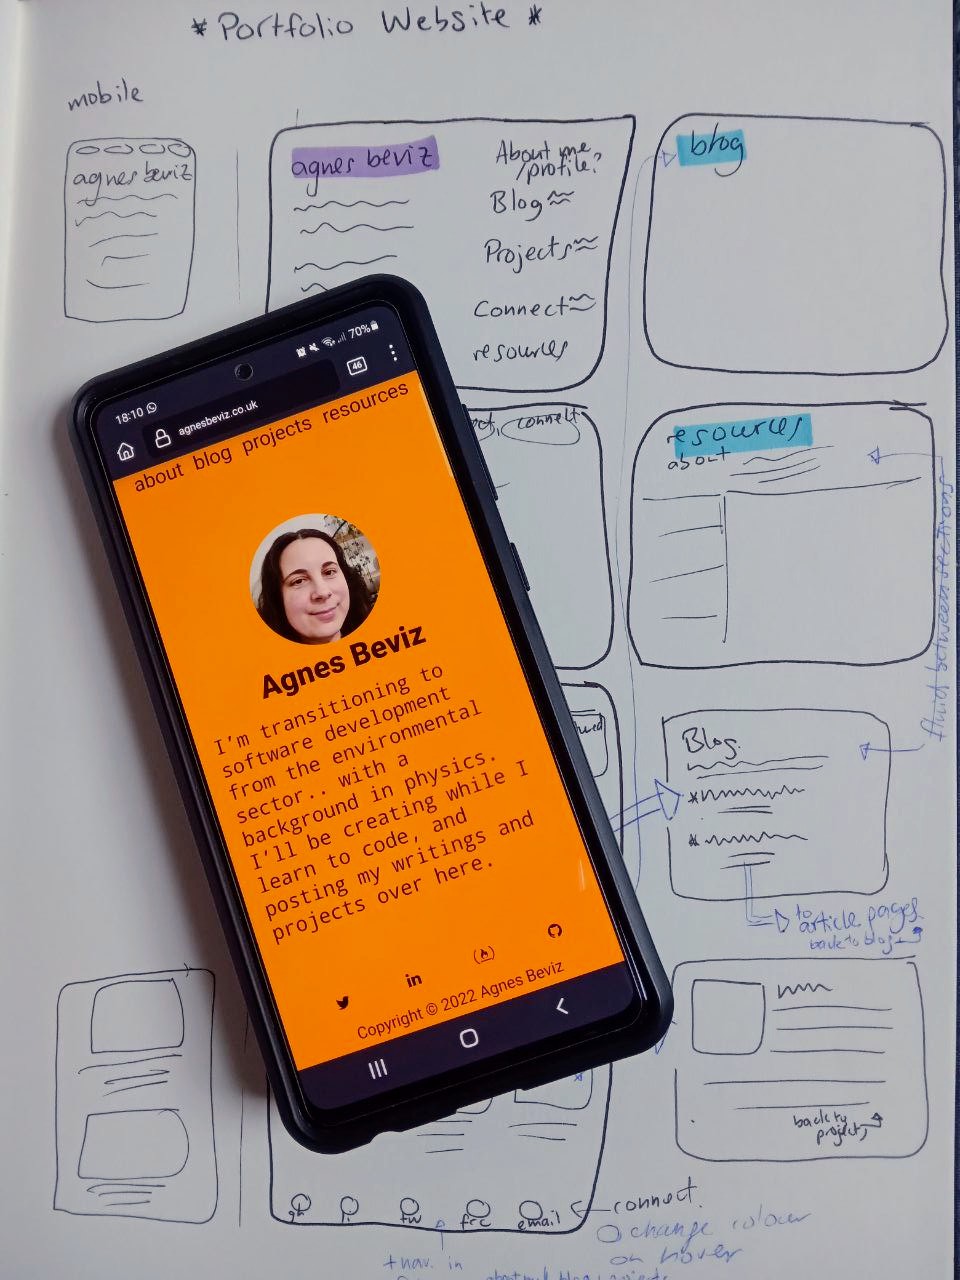 * Portfolio Website *
mobile
agnes beviz
agnes beviz
About me
/profile?
Blog
Projects
Connect
resources
blog
connect
resources
about
fluid between sections
18:10
70%
46
agnesbeviz.co.uk
about blog projects resources
Agnes Beviz
I'm transitioning to
software development
from the environmental
sector.. with a
background in physics.
I'll be creating while I
learn to code, and
posting my writings and
projects over here.
in
Copyright © 2022 Agnes Beviz
Blog.
to
article pages
back to blog
back to
projects
gh
li
tw
fcc
email
connect.
change colour
on hover
+nav. in